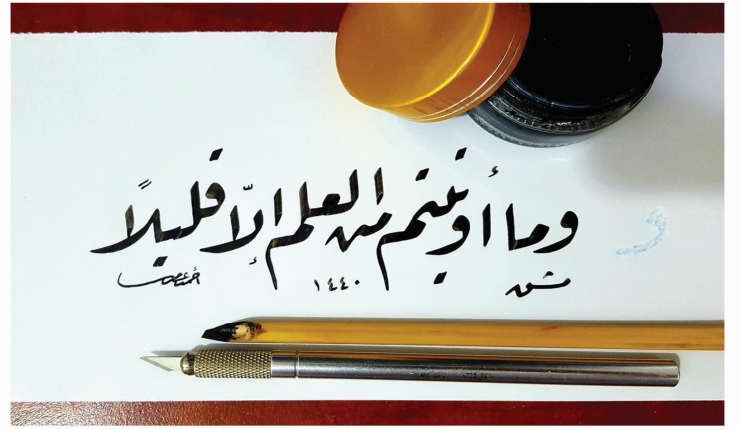 وما أوتيتم من العلم إلّا قليلًا
مشق ١٤٤٠